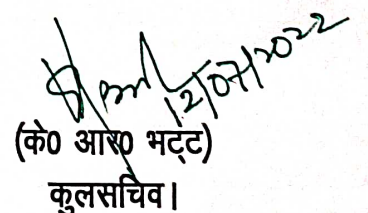 12/07/2022
(के0 आर0 भट्ट)
कुलसचिव।